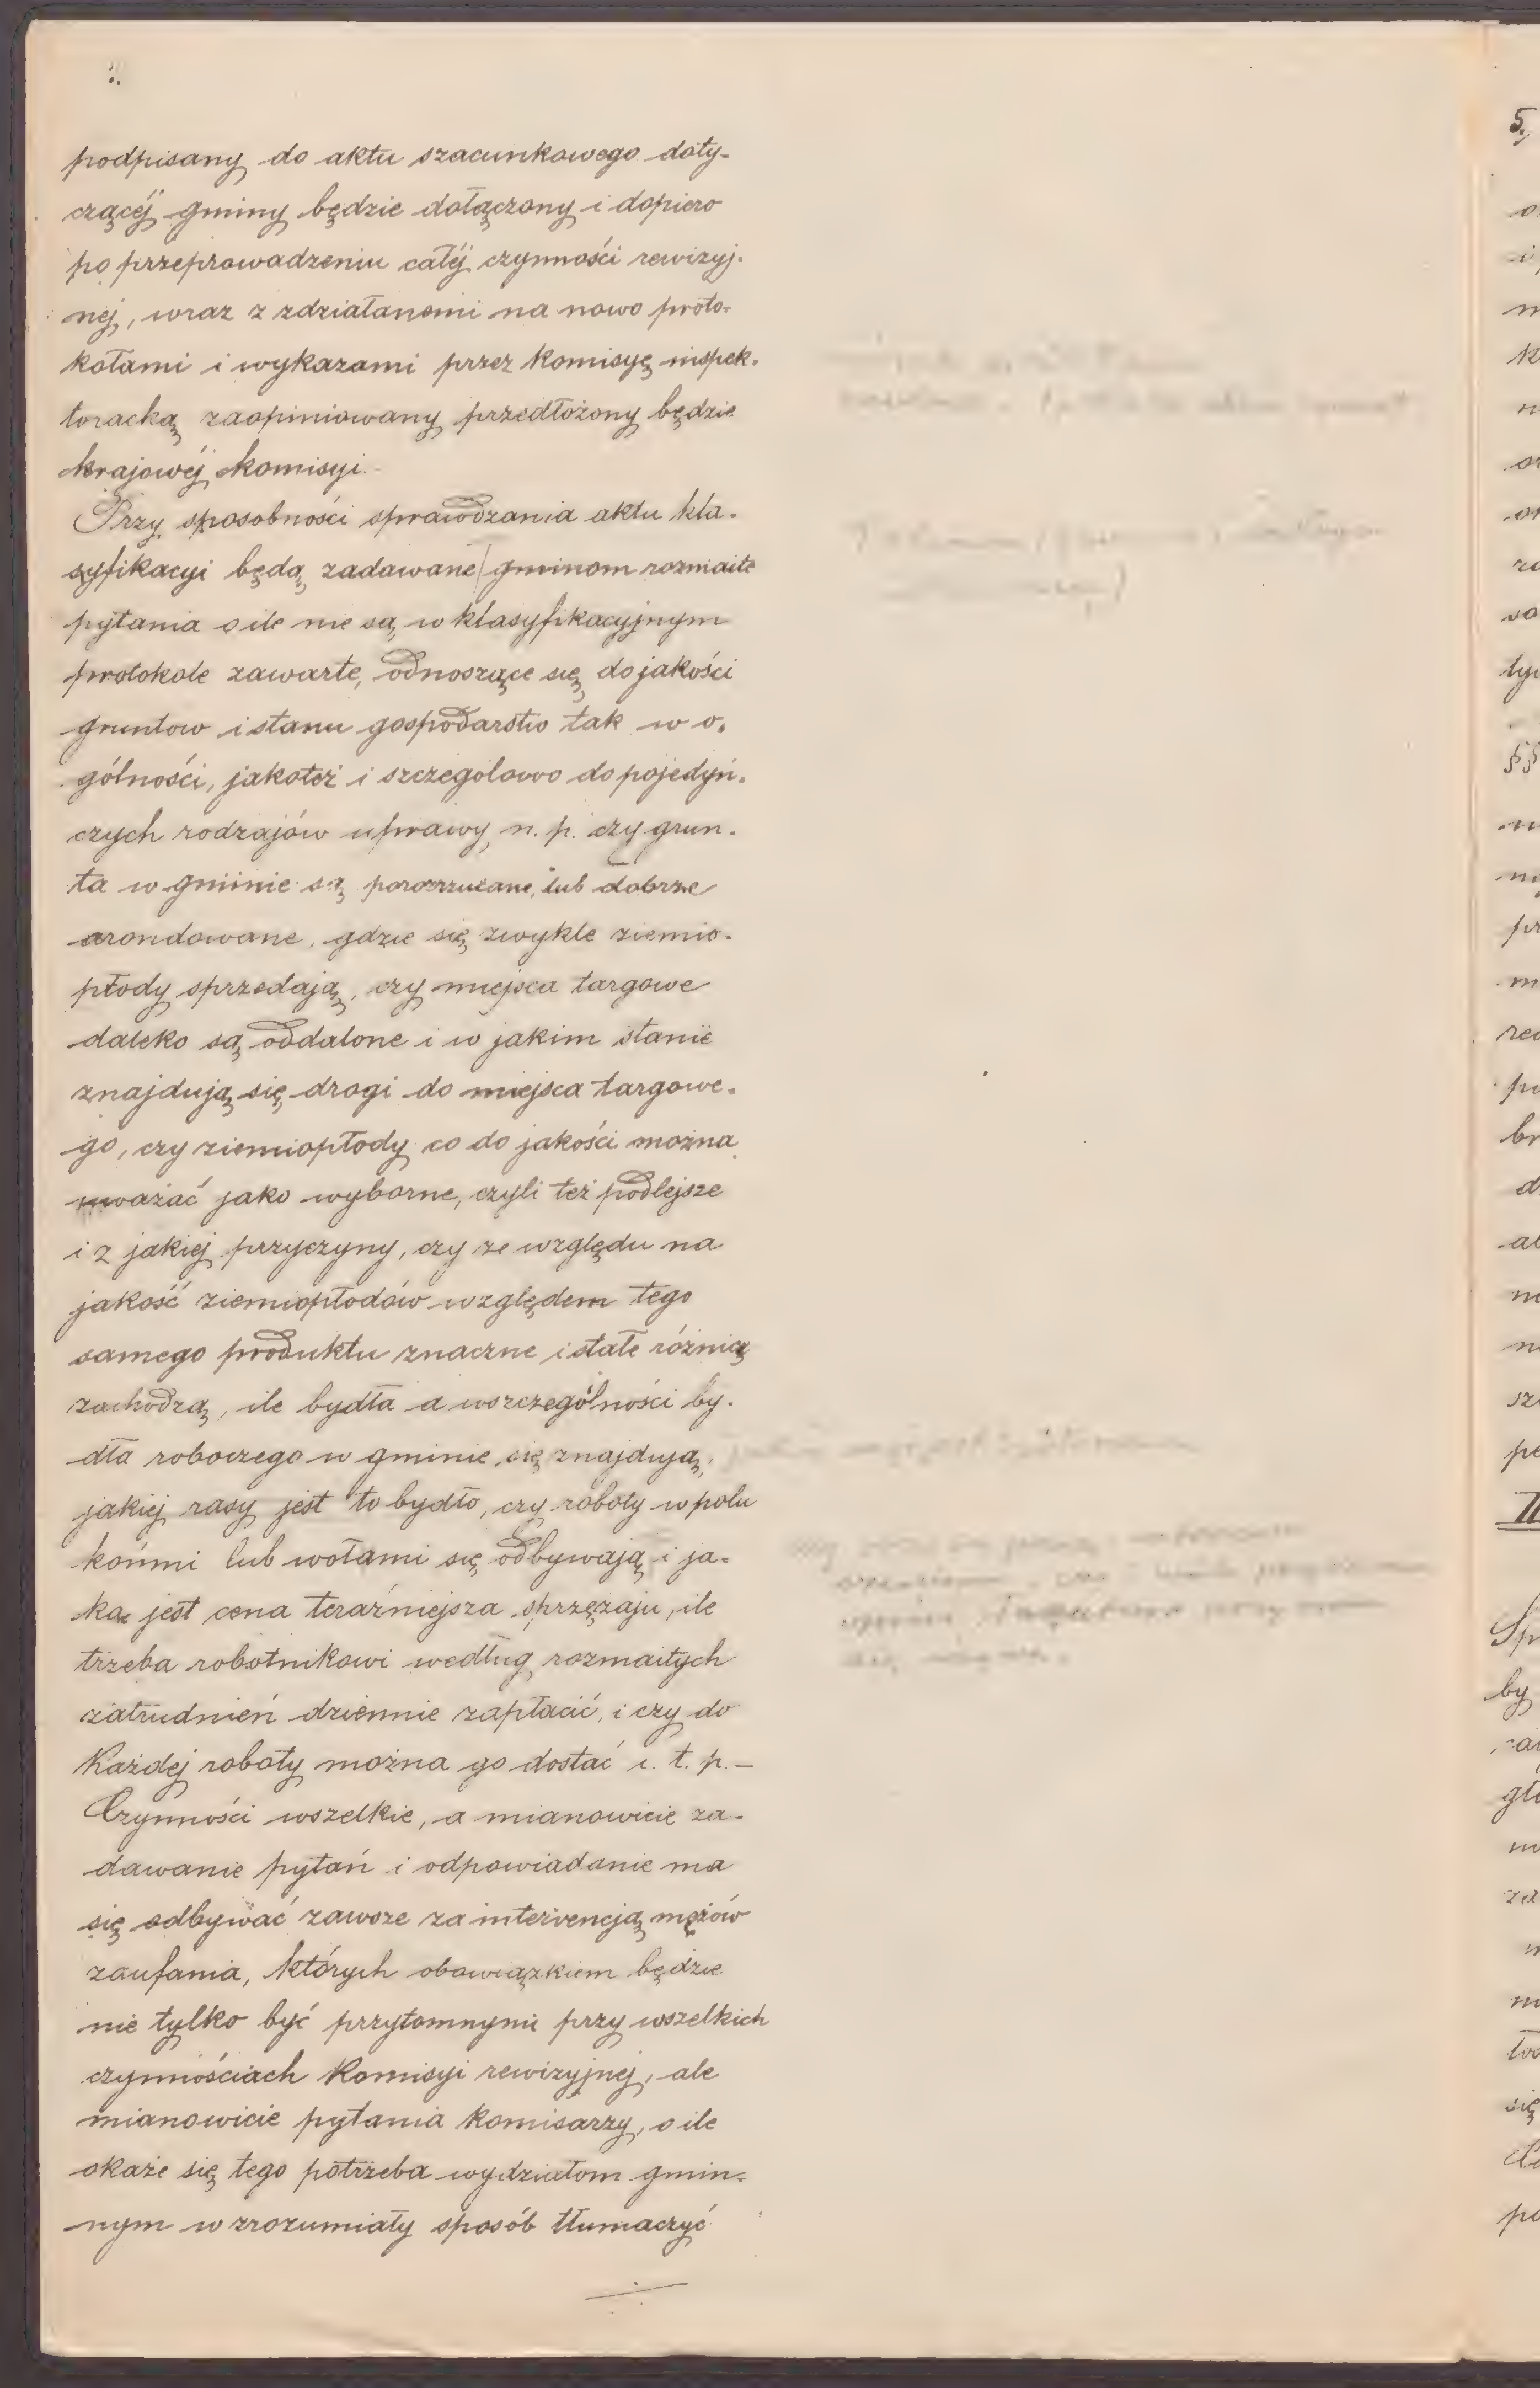 podpisany do aktu szacunkowego doty-
czącéj gminy będzie dołączony i dopiero
po przeprowadzeniu całéj czynności rewizyj-
néj, wraz z zdziałanemi na nowo proto-
kołami i wykazami przez komisyę inspek-
toracką zaopiniowany przedłożony będzie
krajowéj komisyi.
Przy sposobności sprawdzania aktu kla-
syfikacyi będą zadawane gminom rozmaite
pytania o ile nie są w klasyfikacyjnym
protokole zawarte, odnoszące się do jakości
gruntow i stanu gospodarstw tak w o-
gólności, jakoteż i szczegolowo do pojedyń-
czych rodzajów uprawy, n. p. czy grun-
ta w gminie są porozrzucane, lub dobrze
arondowane, gdzie się zwykle ziemio-
płody sprzedają, czy miejsca targowe
daleko są oddalone i w jakim stanie
znajdują się drogi do miejsca targowe-
go, czy ziemiopłody co do jakości można
uważać jako wyborne, czyli też podlejsze
i z jakiej przyczyny, czy ze względu na
jakość ziemiopłodów względem tego
samego produktu znaczne i stałe różnicą
zachodzą, ile bydła a wszczególności by-
dła roboczego w gminie się znajdują,
jakiej rasy jest to bydło, czy roboty w polu
końmi lub wołami się odbywają i ja-
ka jest cena teraźniejsza sprzężaju, ile
trzeba robotnikowi według rozmaitych
zatrudnień dziennie zapłacić, i czy do
Każdej roboty można go dostać i. t. p. —
Czynności wszelkie, a mianowicie za-
dawanie pytań i odpowiadanie ma
się odbywać zawsze za intervencją mężów
zaufania, których obowiązkiem będzie
nie tylko być przytomnymi przy wszelkich
czynnościach Komisyi rewizyjnej, ale
mianowicie pytania Komisarzy, o ile
okaże się tego potrzeba wydziałom gmin-
nym w zrozumiały sposób tłumaczyć
5.
§§